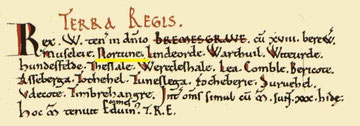 TERRA REGIS.
Rex. W. ten' in dn̄io BREMESGRAVE. cū. XVIII. berew.
Museleie. Nortune. Lindeorde. Warthuil. Witeurde.
hundesfelde. Thessale. Weredeshale. Lea. Comble. Bericote.
Asseberga. Tothehel. Tuneslega. Focheberie. Suruehel.
Udecote. Timbrehangre. Int' om̄s simul cū m̄. suɴᴛ. xxx. hidę.
hoc m̄ tenuit Eduin' T.R.E.